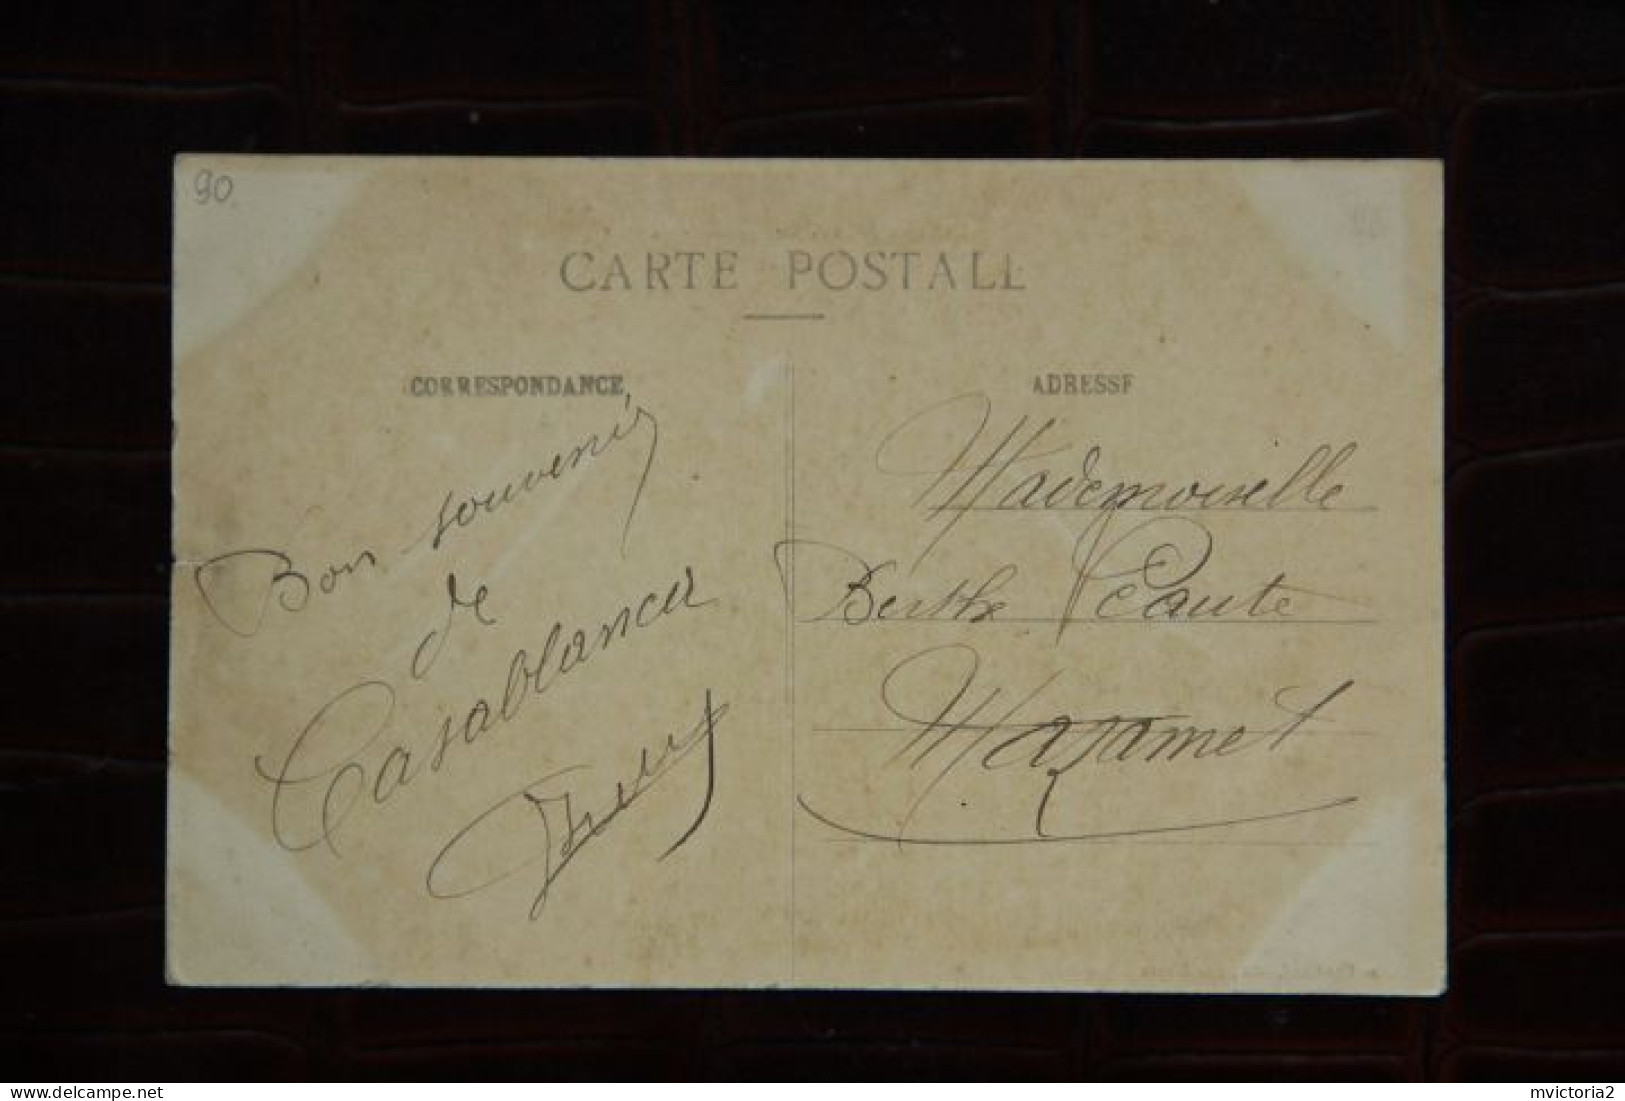 90
CARTE POSTALE
CORRESPONDANCE
ADRESSE
Bon souvenir
de
Casablanca
Mademoiselle
Berthe Caute
Mazamet
mvictoria2